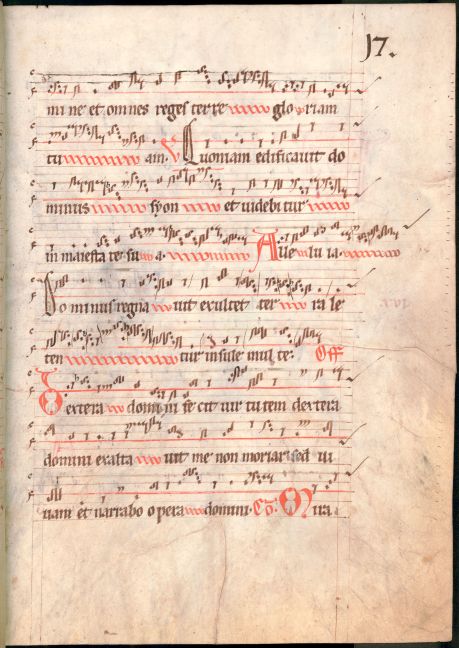 17.
mine et omnes reges terre gloriam
tuam. V Quoniam edificauit do
minus syon et uidebitur
in maiestate sua. Alleluia.
Dominus regna uit exultet terra ire le
ten tur insule multe. Off
Dextera domini fecit uirtutem dextera
domini exaltauit me non moriar sed ui
uam et narrabo opera domini. Co. Mira